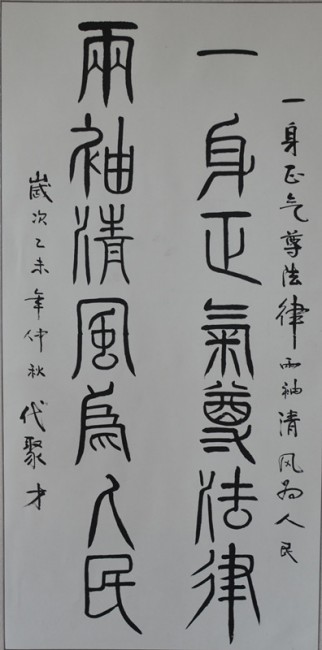 一身正气尊法律两袖清风为人民
一身正氣尊法律
兩袖清風為人民
歲次乙未年仲秋 代聚才